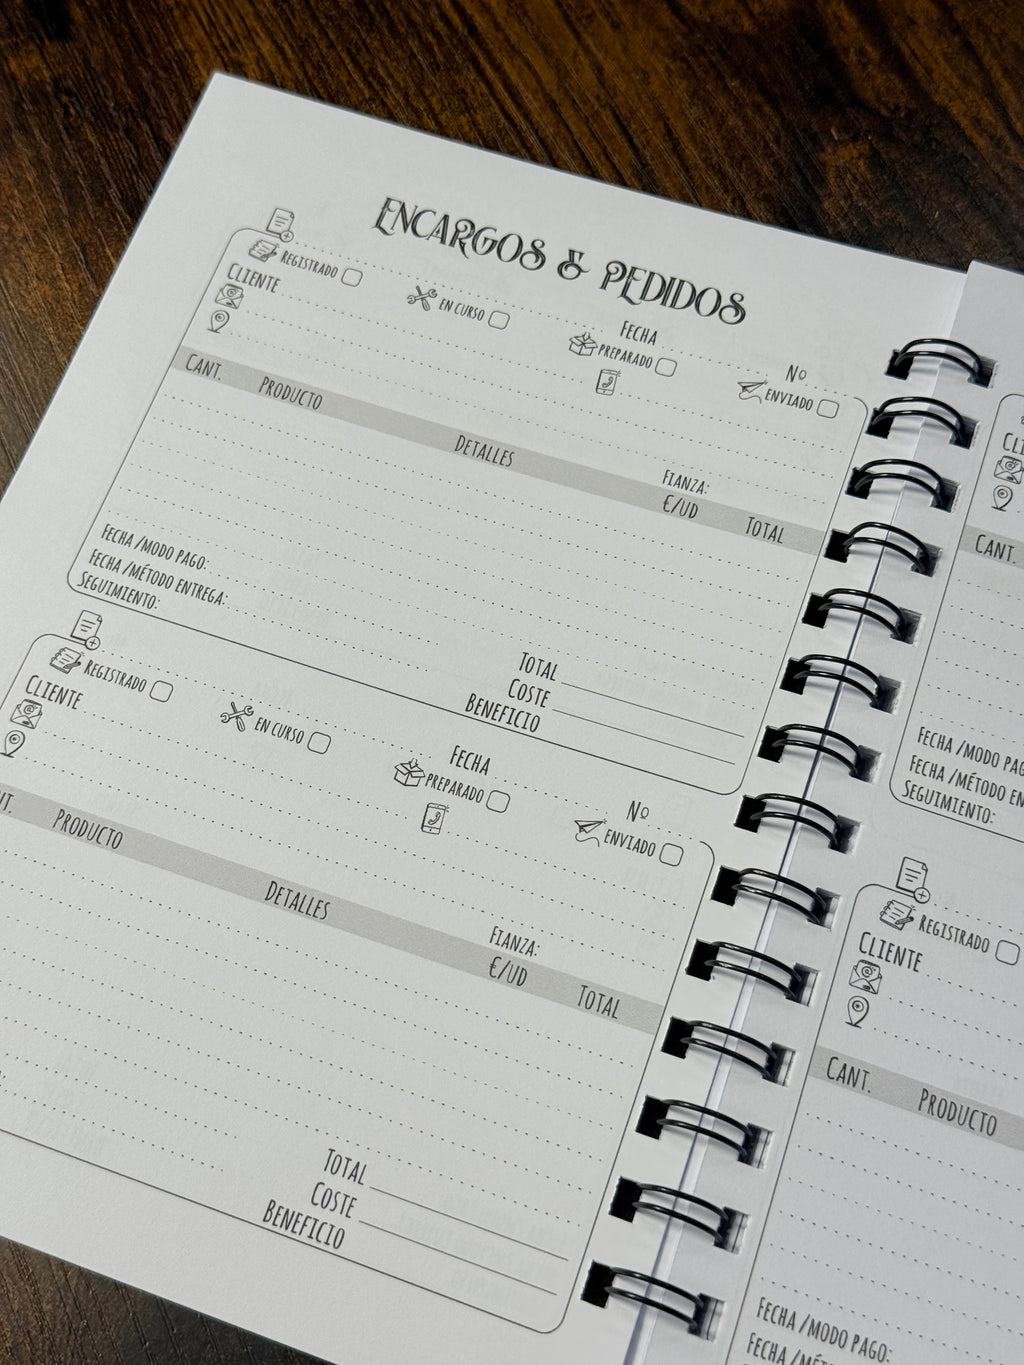 ENCARGOS & PEDIDOS
FECHA Nº
REGISTRADO EN CURSO PREPARADO ENVIADO
CLIENTE
FIANZA:
CANT. PRODUCTO DETALLES €/UD TOTAL
FECHA /MODO PAGO:
FECHA /MÉTODO ENTREGA:
SEGUIMIENTO:
TOTAL
COSTE
BENEFICIO
FECHA Nº
REGISTRADO EN CURSO PREPARADO ENVIADO
CLIENTE
FIANZA:
PRODUCTO DETALLES €/UD TOTAL
TOTAL
COSTE
BENEFICIO
CANT.
FECHA /MODO
FECHA /MÉTODO
SEGUIMIENTO:
REGISTRADO
CLIENTE
CANT. PRODUCTO
FECHA /MODO PAGO:
FECHA